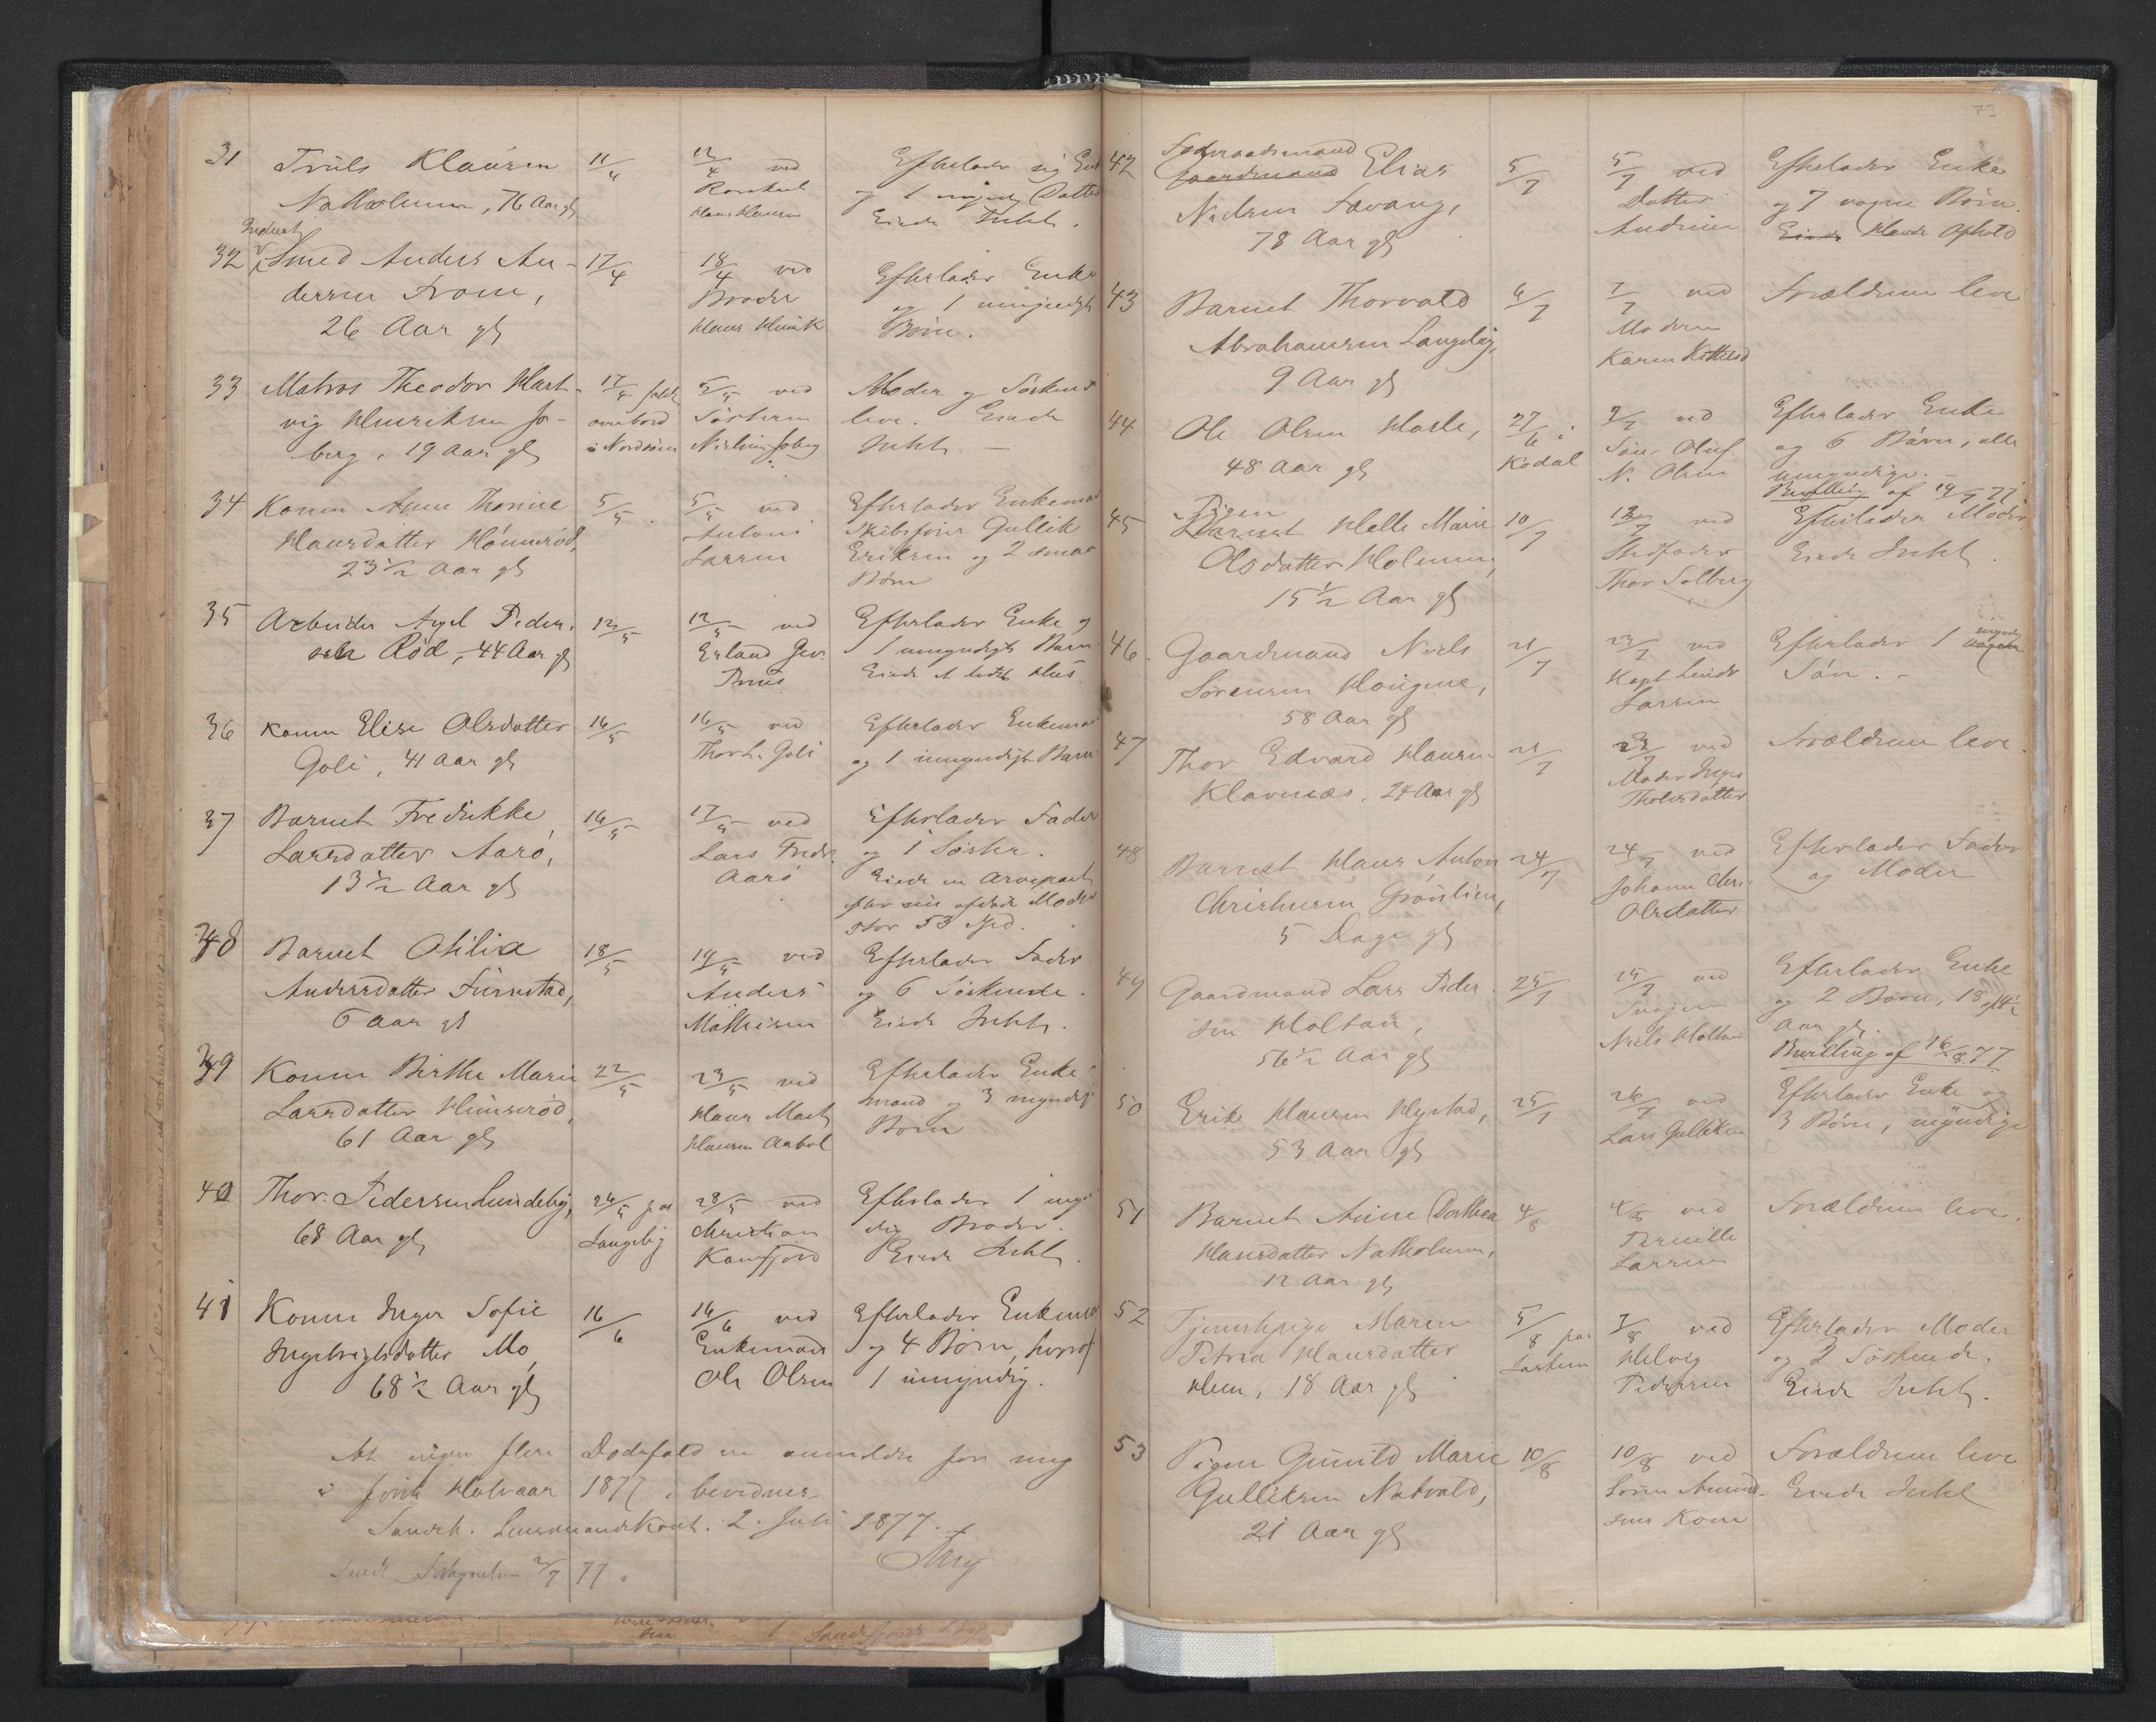 31 Truls Klausen 11/4 12/4 ved Efterlader sig
Natholmen, 76 Aar gl og 1 myndig Datter
Hans Hansen Eiede Intet.
32 Smed Anders An- 17/4 18/4 ved Efterlader Enke
dersen From, Broder og 1 umyndigt
26 Aar gl Hans Henrik Børn.
33 Matros Theodor Hart- 17/4 faldt 5/5 ved Moder og Søskende
vig Henriksen Jo- overbord Søsteren leve. Eiede
berg, 19 Aar gl i Nordsøen Joberg Intet —
34 Konen Anne Thorine 5/5 5/5 ved Efterlader Enkemand
Hansdatter Hønnerød, Antoni Skibsfører Gullik
23 1/2 Aar gl Larsen Eriksen og 2 smaa
Børn
35 Arbeider Axel Peder- 12/5 12/5 ved Efterlader Enke og
sen Rød, 44 Aar gl Erland 1 umyndigt Barn
Eiede et lidet Hus
36 Konen Elise Olsdatter 16/5 16/5 ved Efterlader Enkemand
Goli, 41 Aar gl Thor L. Goli og 1 umyndigt Barn
37 Barnet Fredrikke 16/5 17/5 ved Efterlader Fader
Larsdatter Aarø, Lars Fredr. og 1 Søster.
13 1/2 Aar gl Aarø Eiede en Arvepart
efter sin afdøde Moder
stor 53 Spd.
38 Barnet Otilia 18/5 19/5 ved Efterlader Fader
Andersdatter Furustad, Anders og 6 Søskende.
6 Aar gl Mathisen Eiede Intet.
39 Konen Birthe Marie 22/5 23/5 ved Efterlader Enke-
Larsdatter Hunsrød, Hans Mart. mand og 3 myndige
61 Aar gl Hansen Aabol Børn
40 Thor Pedersen Lundeby, 26/5 paa 28/5 ved Efterlader 1 myn-
68 Aar gl Langeby Christian dig Broder.
Kamfjord Eiede Intet.
41 Konen Inger Sofie 16/6 16/6 ved Efterlader Enkemand
Ingebrigtsdatter Mo, Enkemand og 4 Børn, hvoraf
68 1/2 Aar gl Ole Olsen 1 umyndig.
At ingen flere Dødsfald ere anmeldte for mig
i første Halvaar 1877, bevidnes
Sandeh. Lensmandskont. 2. Juli 1877.
2/7 77.
73
42 Gaardmand Elias 5/7 5/7 ved Efterlader Enke
Nielsen Sævang, Datter og 7 voxne Børn.
78 Aar gl Andrine Eiede Havde Ophold
43 Barnet Thorvald 6/7 7/7 ved Forældrene leve
Abrahamsen Langeby, Moderen
9 Aar gl Karen Kettelsd
44 Ole Olsen Hasle, 27/6 i 9/7 ved Efterlader Enke
48 Aar gl Kodal Søn Oluf og 6 Børn, alle
N. Olsen umyndige.
Bevilling af 14/7 77
45 Pigen Barnet Helle Marie 10/7 12/7 ved Efterlader Moder
Olsdatter Holmen, Stedfader Eiede Intet.
15 1/2 Aar gl Thor Solberg
46. Gaardmand Niels 21/7 23/7 ved Efterlader 1 myndig voxen
Sørensen Haugene, Larsen Søn. -
58 Aar gl
47 Thor Edvard Hansen 21/7 23/7 ved Forældrene leve.
Klavenæs, 24 Aar gl Moder Inger
Tholersdatter
48 Barnet Hans Anton 24/7 24/7 ved Efterlader Fader
Christensen Grønlien, Johanne Chri- og Moder
5 Dage gl Olsdatter
49 Gaardmand Lars Peder- 25/7 25/7 ved Efterlader Enke
sen Holtan, Svoger og 2 Børn, 18 og 14 1/2
56 1/2 Aar gl Niels Holtan Aar gl.
Bevilling af 16/8 77
50 Erik Hansen Hystad, 25/7 26/7 ved Efterlader Enke og
53 Aar gl Lars Gulliksen 3 Børn, myndige
51 Barnet Anne Dorthea 4/8 4/8 ved Forældrene leve.
Hansdatter Natholmen, Pernille
12 Aar gl Larsen
52 Tjenestepige Maren 5/8 paa 7/8 ved Efterlader Moder
Petrea Hansdatter Helvig og 2 Søskende.
Hem, 18 Aar gl Pedersen Eiede Intet.
53 Pigen Gunild Marie 10/8 10/8 ved Forældrene leve
Gulliksen Natvald, Søren Amund- Eiede Intet
21 Aar gl sens Kone